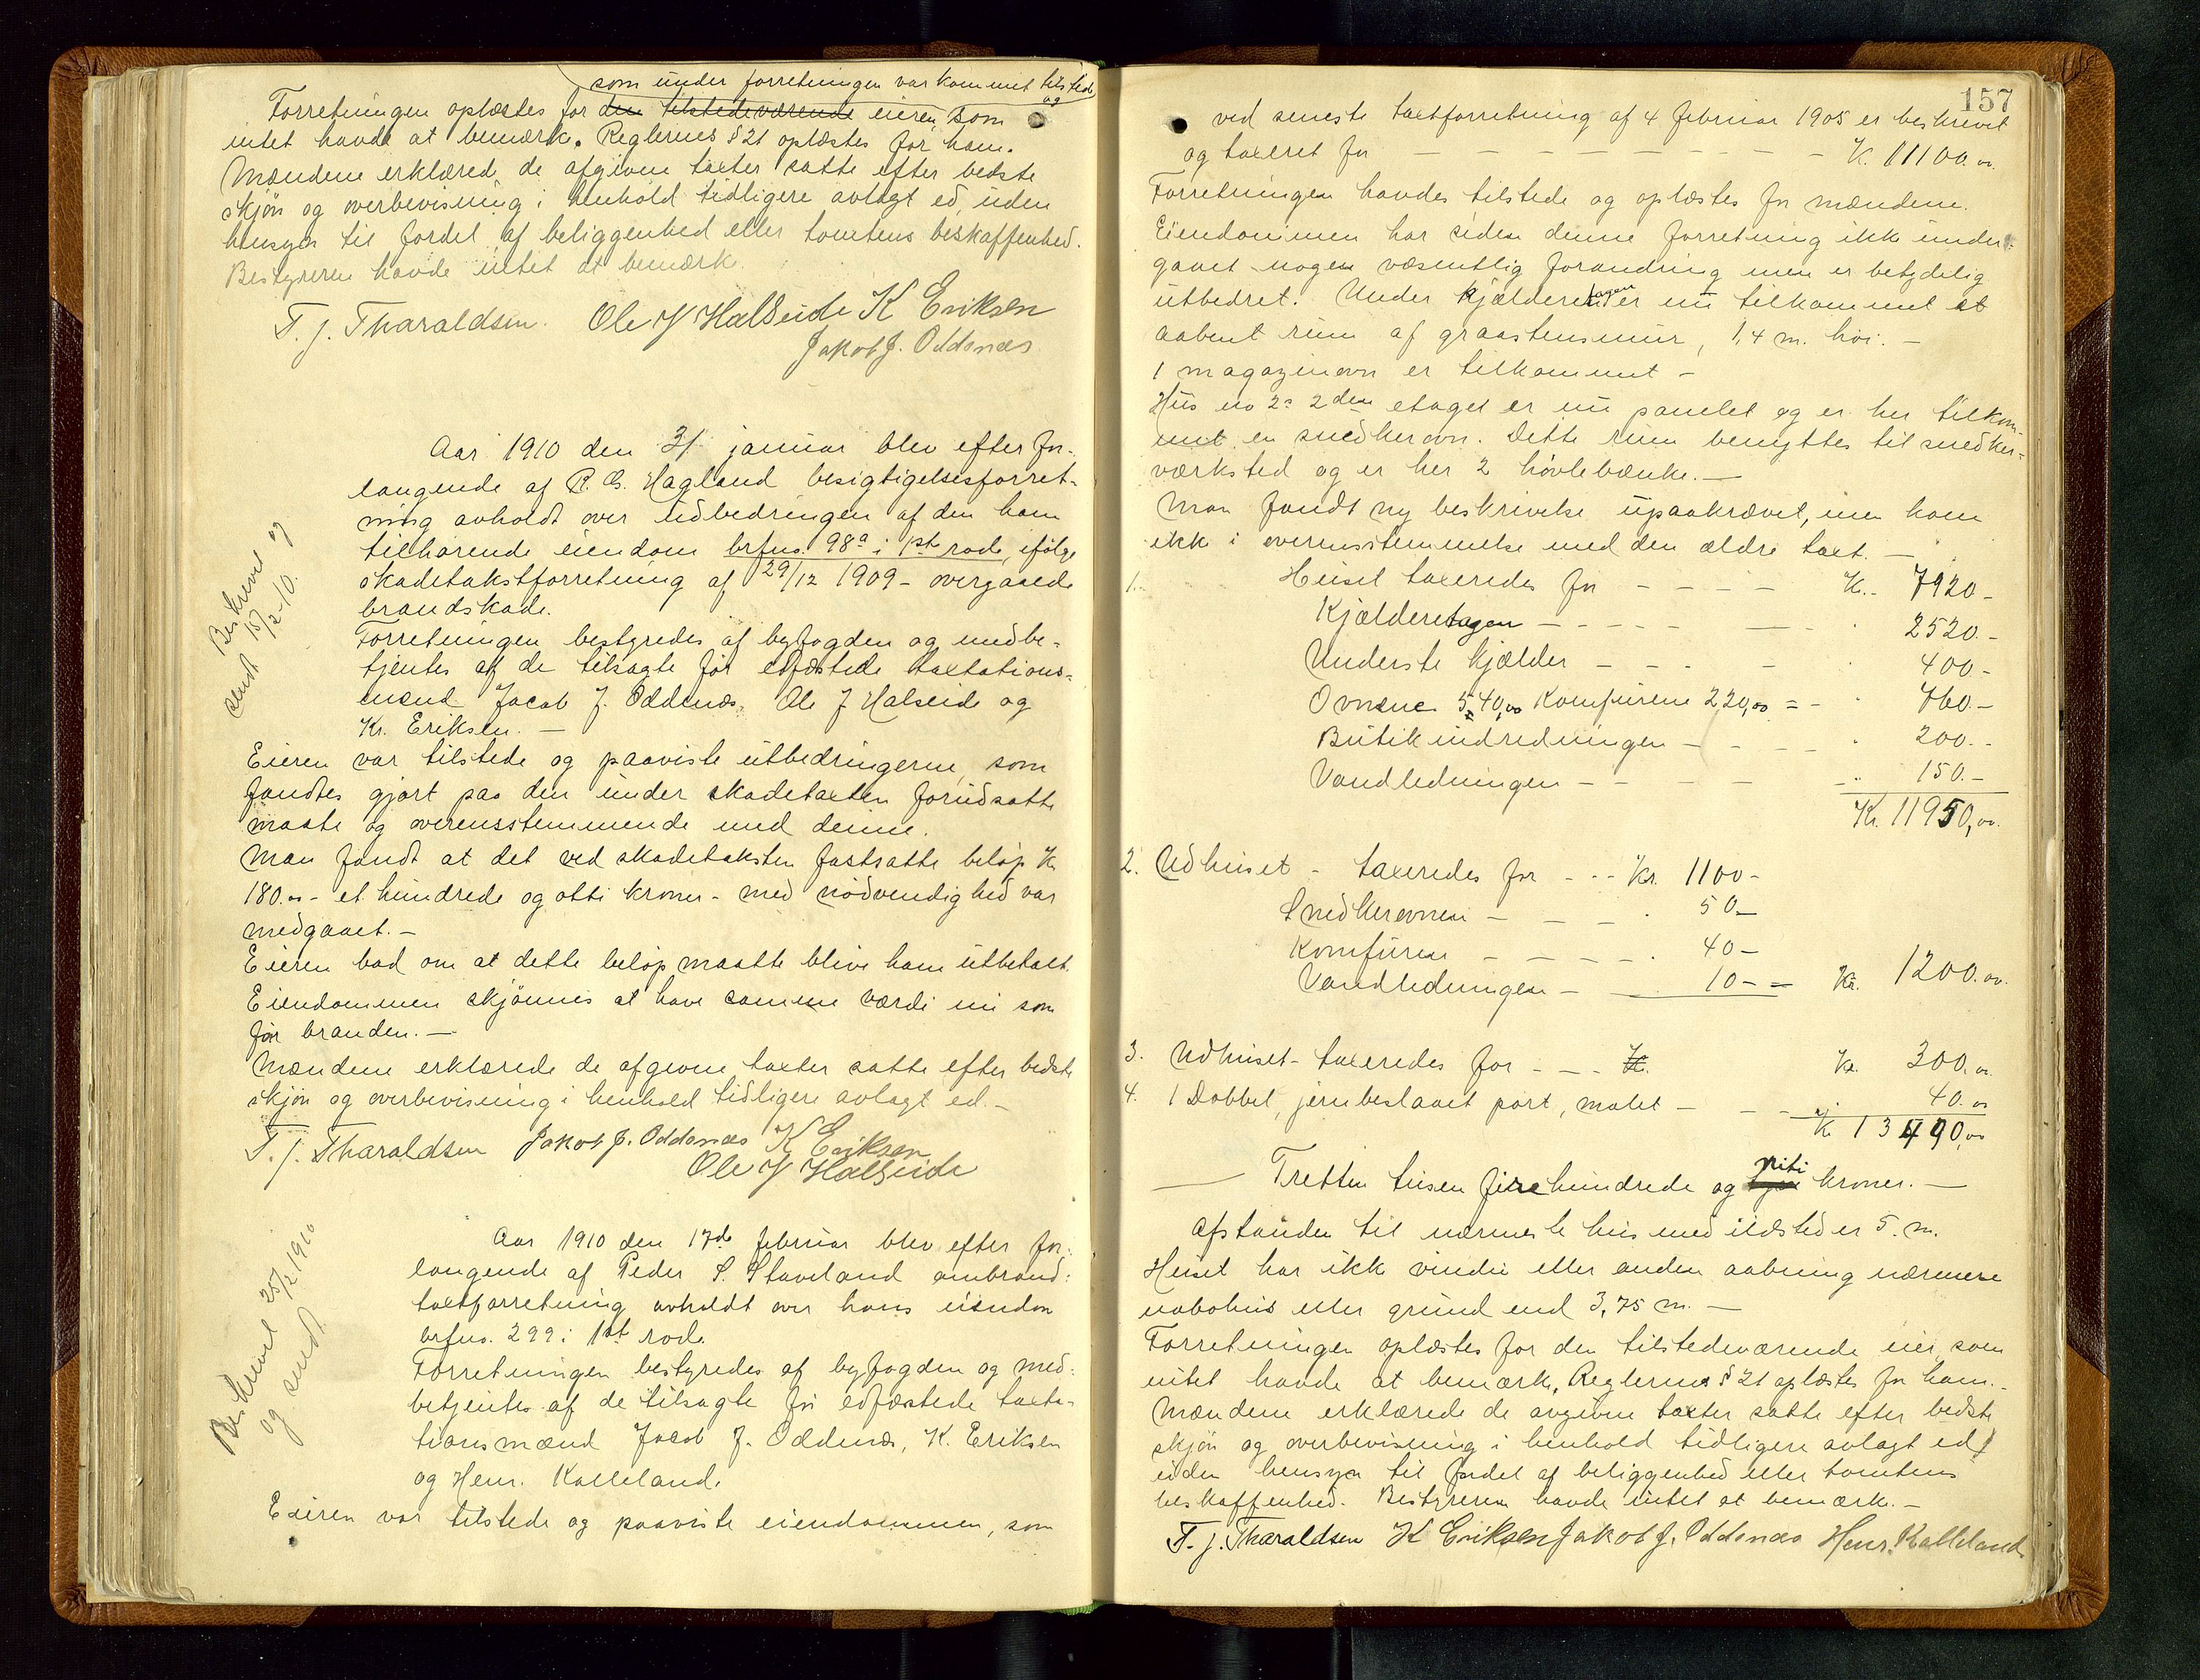 som under forretningen var kommet tilstede
og
Forretningen oplæstes for den tilstedeværende eieren, som
intet havde at bemærke. Reglernes § 21 oplæstes for ham.
Mændene erklærede de afgivne taxter satte efter bedste
skjøn og overbevisning i henhold tidligere avlagt ed, uden
hensyn til fordel af beliggenhed eller tomtens beskaffenhed.
Bestyreren havde intet at bemærke.
T. J. Tharaldsen. Ole J Halseide K Eriksen
Jakob J. Oddenæs
Beskrevet og
sendt 15/2-10.
Aar 1910 den 31 januar blev efter for-
langende af R. G. Hagland besigtigelsesforret-
ning avholdt over udbedringen af den ham
tilhørende eiendom brfno. 98a i 1ste rode, ifølge
skadetakstforretning af 29/12 1909 - overgaaede
brandskade.
Forretningen bestyredes af byfogden og medbe-
tjentes af de tilsagte før edfæstede taxtations-
mænd Jacob J. Oddenæs, Ole J Halseide og
Kr. Eriksen. -
Eieren var tilstede og paaviste utbedringerne, som
fandtes gjort paa den under skadetaxten forudsatte
maate og overensstemmende med denne.
Man fandt at det ved skadetaksten fastsatte beløp Kr
180.00 - et hundrede og otti kroner - med nødvendighed var
medgaaet. -
Eieren bad om at dette beløp maatte blive ham utbetalt.
Eiendommen skjønnes at have samme værdi nu som
før branden. -
Mændene erklærede de afgivne taxter satte efter bedste
skjøn og overbevisning i henhold tidligere avlagt ed. -
T. J. Tharaldsen Jakob J. Oddenæs K Eriksen
Ole J Halseide
Beskrevet 25/2 1910
og sendt
Aar 1910 den 17de februar blev efter for-
langende af Peder S. Staveland ombrand-
taxtforretning avholdt over hans eiendom
brfno. 299 i 1st rode.
Forretningen bestyredes af byfogden og med-
betjentes af de tilsagte før edfæstede taxta-
tionsmænd Jacob J. Oddenæs, K. Eriksen
og Henr. Kalleland.
Eieren var tilstede og paaviste eiendommen, som
157
ved seneste taxtforretning af 4 februar 1905 er beskrevet
og taxeret for - - - - - - - - K. 11100.00.
Forretningen havdes tilstede og oplæstes for mændene.
Eiendommen har siden denne forretning ikke under-
gaaet nogen væsentlig forandring men er betydelig
utbedret. Under kjælderetagen er nu tilkommet et
aabent rum af graastensmur, 1,4 m. høi. -
1 magazinovn er tilkommet -
Hus no 2: 2den etaget er nu panelet og er her tilkom-
met en snedkerovn. Dette rum benyttes til snedker-
værksted og er her 2 høvlebænke. -
Man fandt ny beskrivelse upaakrævet, men kom
ikke i overensstemmelse med den ældre taxt. -
1. Huset taxeredes for - - - - K. 7920 -
Kjælderetagen - - - - - - - 2520 -
Underste kjælder - - - - 400 -
Ovnene 540,00 Komfurene 220,00 = - 760 -
Butikindredningen - - - - 200 -
Vandledningen - - - - 150 -
Kr. 11950,00.
2. Udhuset - taxeredes for - - - Kr. 1100 -
Snedkerovnen - - - - 50 -
Komfuren - - - - - 40 -
Vandledningen - - - 10 - = Kr. 1200.00.
3. Udhuset - taxeredes for - - - K. Kr. 300.00
4. 1 Dobbel, jernbeslaaet port, malet - - - - 40.00
Kr. 13490,00
niti
Tretten tusen firehundrede og kroner. -
Afstanden til nærmeste hus med ildsted er 5. m.
Huset har ikke vindu eller anden aabning nærmere
nabohus eller grund end 3,75 m. -
Forretningen oplæstes for den tilstedeværende eier, som
intet havde at bemærke. Reglernes § 21 oplæstes for ham. -
Mændene erklærede de avgivne taxter satte efter bedste
skjøn og overbevisning i henhold tidligere avlagt ed
uden hensyn til fordel af beliggenhed eller tomtens
beskaffenhed. Bestyreren havde intet at bemærke. -
T. J. Tharaldsen K Eriksen Jakob J. Oddenæs Henr. Kalleland